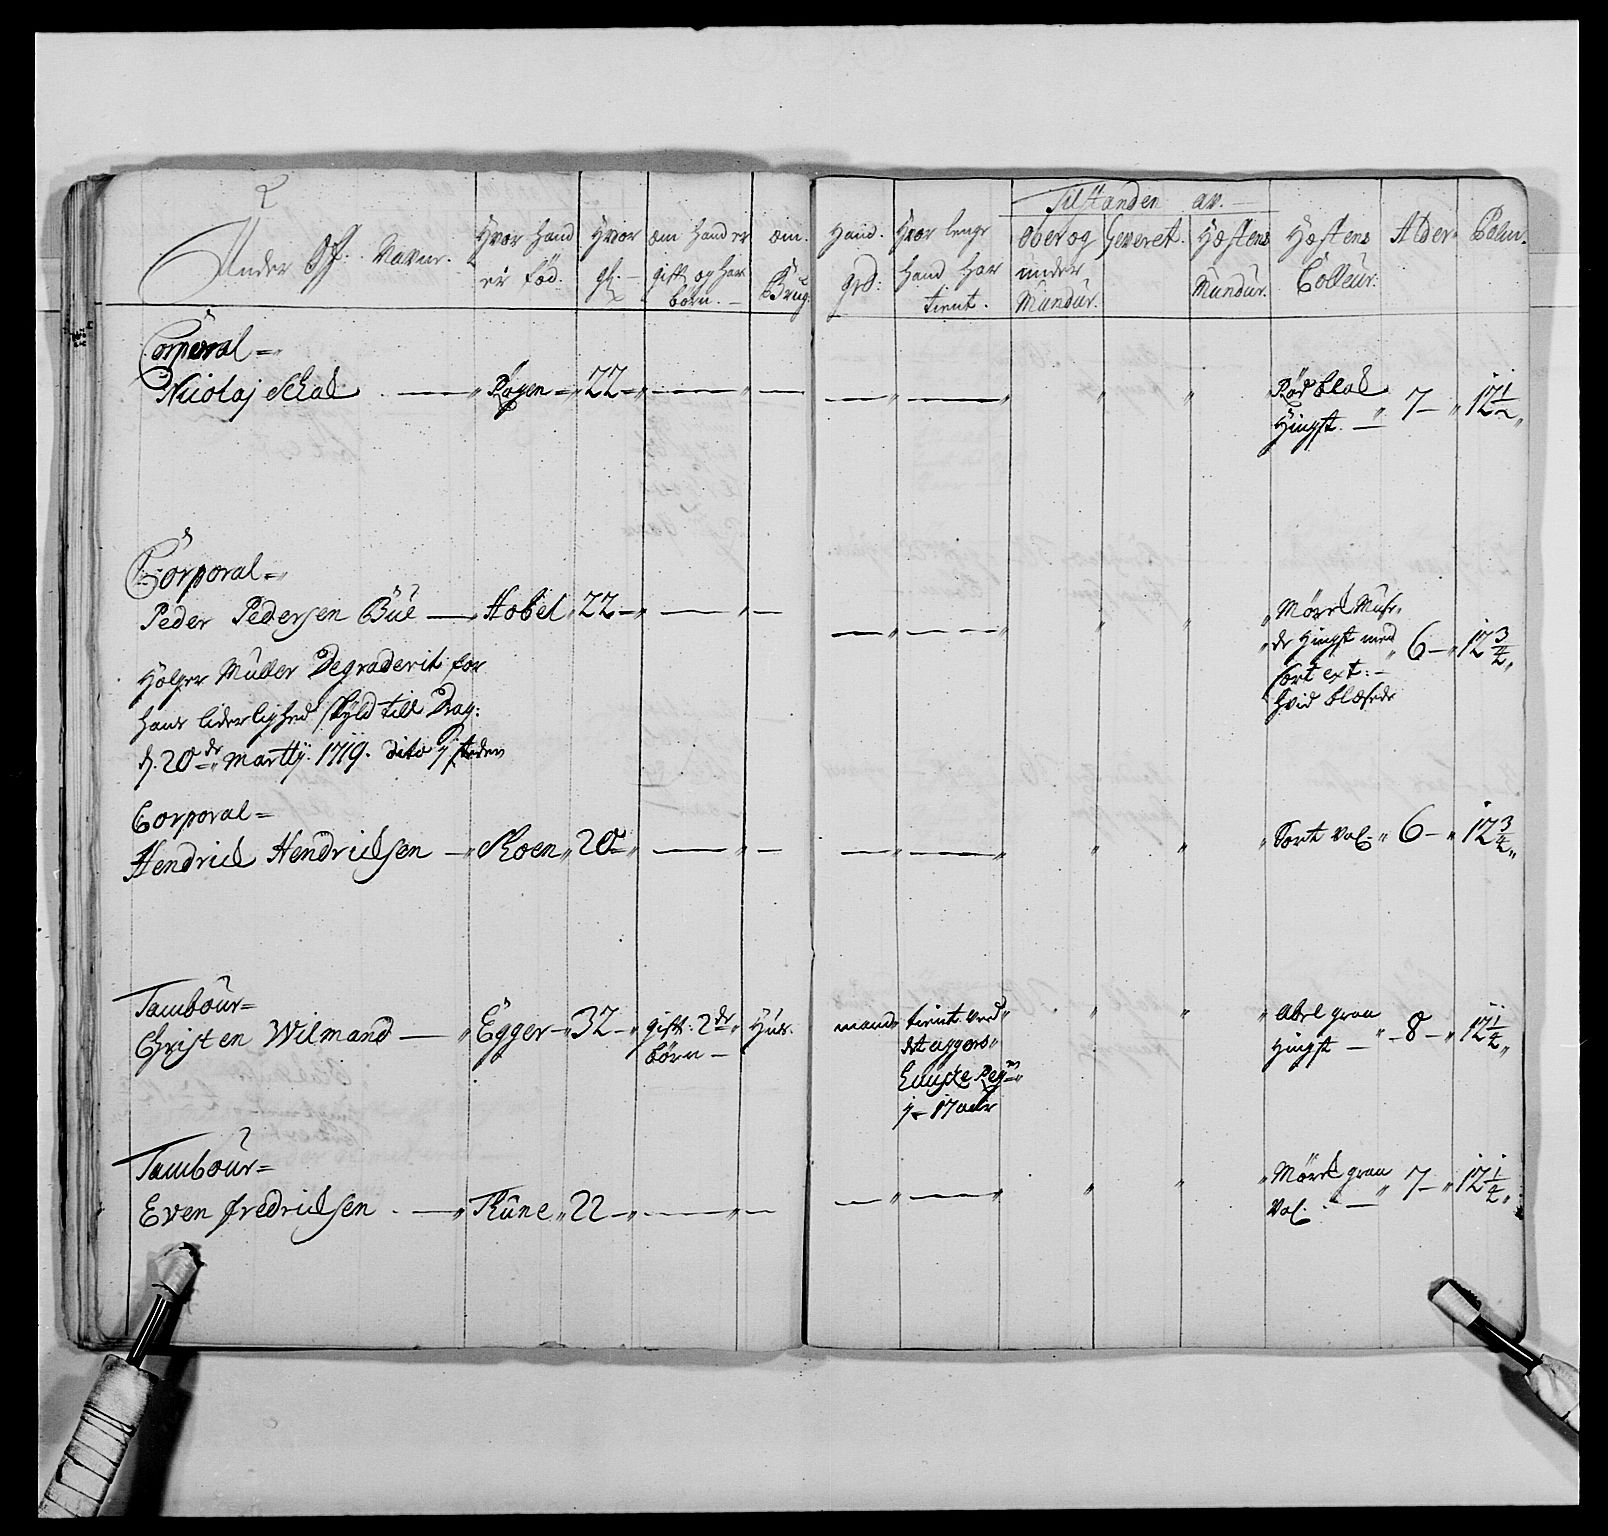 Under Off: Navne. Hvor Hand er fød. Hvor gl. om hand er gift og har børn. om. Brug:
Hand. grd: Hvor lenge Hand har tient. Tilstanden av. Ober og under Mundur. Geveret. Hestens Mundur. Hestens Colleur. Alder Palm.
Corporal
Nicolaj Schal 22 Rød blad Hingst. 7 12 1/2
Corporal
Peder Pedersen Bue Hobel 22 Mørk Mus de Hingst med sort ext: hvid blesede 6 12 3/4
Holger Muller Degraderit for
hans liderlighed skyld till Drag:
d. 20de Martij. 1719. dito j steden
Corporal
Hendrich Hendrichsen Skoen 20 Sort Val. 6 12 3/4
Tambour
Christen Wilmand Egger 32 gift: 2de børn Hus.
mand tient ved Reg j 17 aar graa Hingst 8 12 1/4
Tambour
Even fredrichsen Rune 22 Mørk graa Val. 7 12 1/4